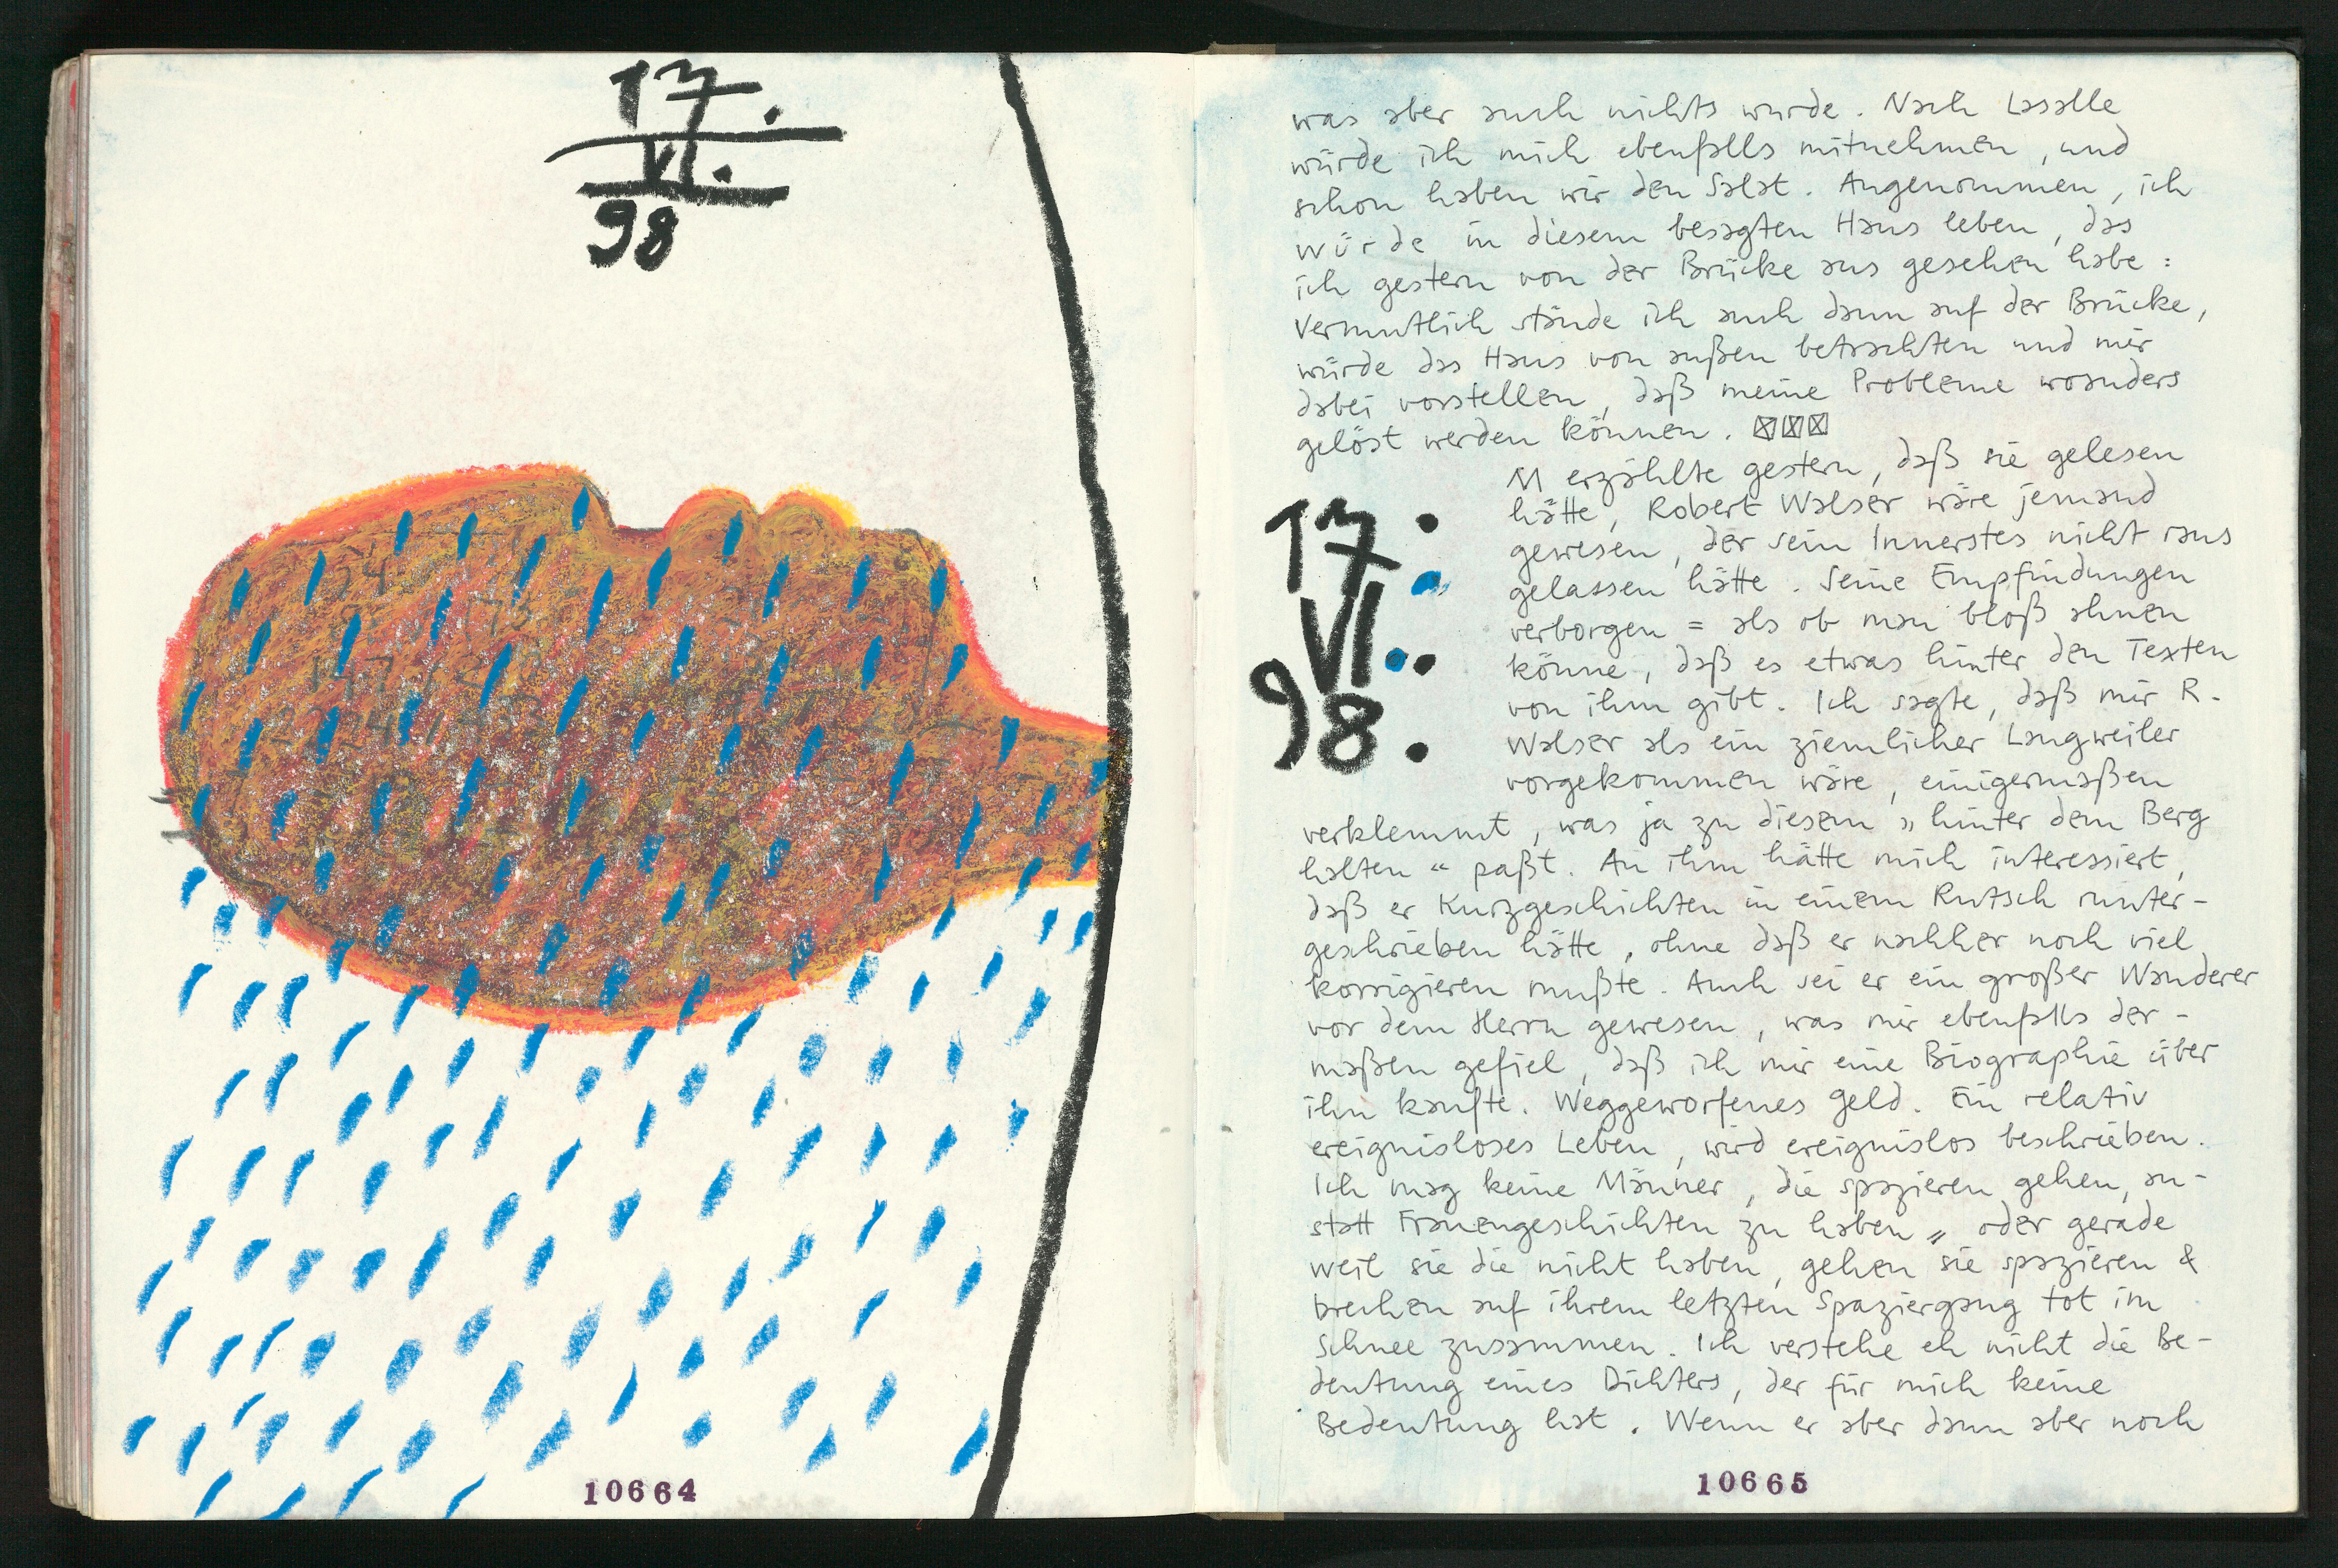 17.
VI.
98
10664
was aber auch nichts wurde. Nach Lasalle
würde ich mich ebenfalls mitnehmen, und
schon haben wir den Salat. Angenommen, ich
würde in diesem besagten Haus leben, das
ich gestern von der Brücke aus gesehen habe:
Vermutlich stände ich auch dann auf der Brücke,
würde das Haus von außen betrachten und mir
dabei vorstellen, daß meine Probleme woanders
gelöst werden können.
17.
VI..
98.
M erzählte gestern, daß sie gelesen
hätte, Robert Walser wäre jemand
gewesen, der sein Innerstes nicht raus
gelassen hätte. Seine Empfindungen
verborgen = als ob man bloß ahnen
könne, daß es etwas hinter den Texten
von ihm gibt. Ich sagte, daß mir R.
Walser als ein ziemlicher Langweiler
vorgekommen wäre, einigermaßen
verklemmt, was ja zu diesem „hinter dem Berg
halten“ paßt. An ihm hätte mich interessiert,
daß er Kurzgeschichten in einem Rutsch runter-
geschrieben hätte, ohne daß er nachher noch viel
korrigieren mußte. Auch sei er ein großer Wanderer
vor dem Herrn gewesen, was mir ebenfalls der-
maßen gefiel, daß ich mir eine Biographie über
ihn kaufte. Weggeworfenes Geld. Ein relativ
ereignisloses Leben, wird ereignislos beschrieben.
Ich mag keine Männer, die spazieren gehen, an-
statt Frauengeschichten zu haben„ oder gerade
weil sie die nicht haben, gehen sie spazieren &
brechen auf ihrem letzten Spaziergang tot im
Schnee zusammen. Ich verstehe eh nicht die Be-
deutung eines Dichters, der für mich keine
Bedeutung hat. Wenn er aber dann aber noch
10665